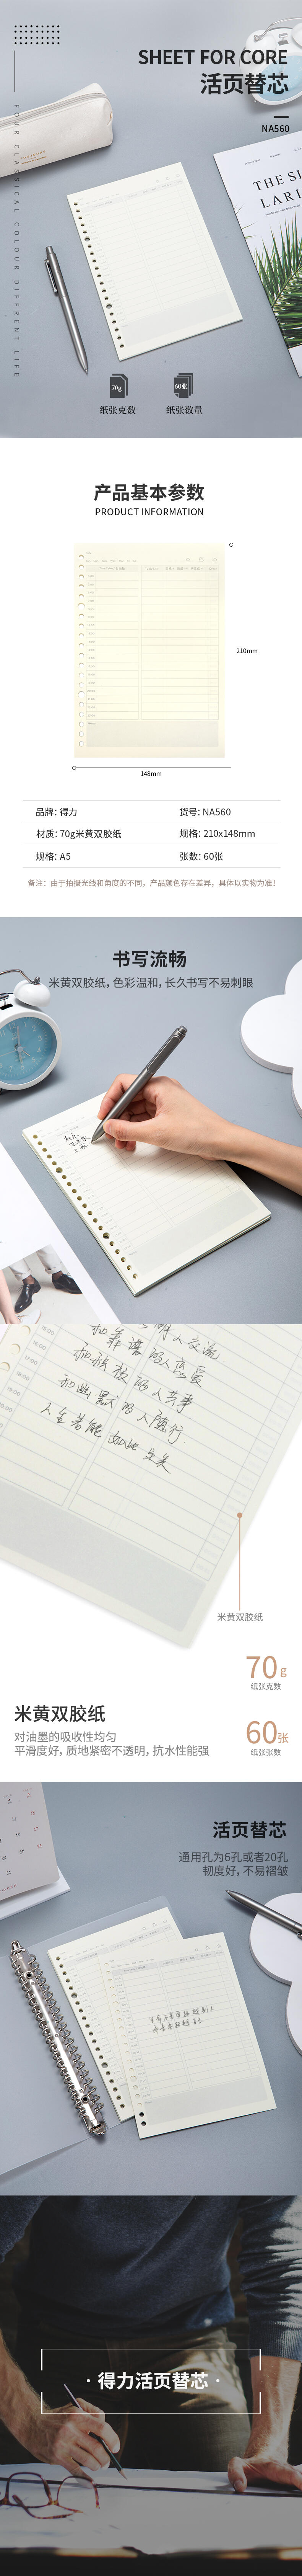 SHEET FOR CORE
活页替芯
NA560
FOUR CLASSICAL COLOUR DIFFERENT LIFE
THE S
LARI
70g
60张
纸张克数
纸张数量
产品基本参数
PRODUCT INFORMATION
210mm
148mm
品牌: 得力
货号: NA560
材质: 70g米黄双胶纸
规格: 210x148mm
规格: A5
张数: 60张
备注: 由于拍摄光线和角度的不同, 产品颜色存在差异, 具体以实物为准!
书写流畅
米黄双胶纸, 色彩温和, 长久书写不易刺眼
和靠谱的人恋爱
和幽默的人随行
人生若能如此 足矣
米黄双胶纸
70g
纸张克数
米黄双胶纸
60张
纸张张数
对油墨的吸收性均匀
平滑度好, 质地紧密不透明, 抗水性能强
活页替芯
通用孔为6孔或者20孔
韧度好, 不易褶皱
· 得力活页替芯 ·